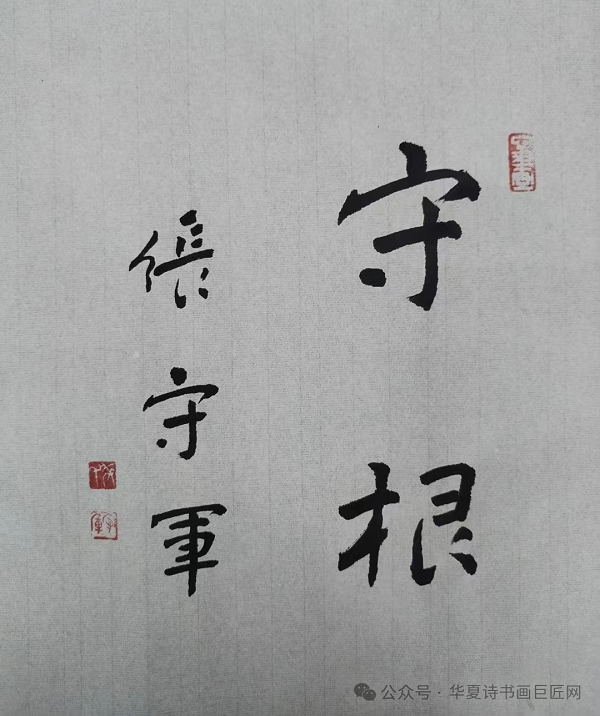 守根
張守軍
公众号·华夏诗书画巨匠网